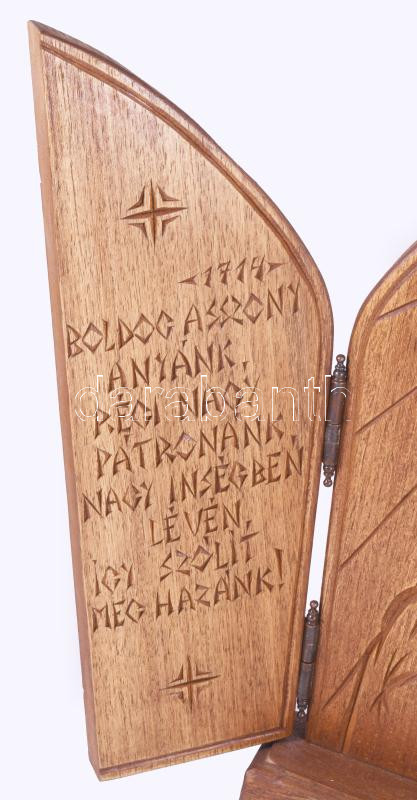 1714
BOLDOG ASSZONY
ANYÁNK,
RÉGI
PÁTRONÁNK,
NAGY INSÉGBEN
LÉVÉN,
ÍGY SZÓLÍT
MEG HAZÁNK!
darabanth